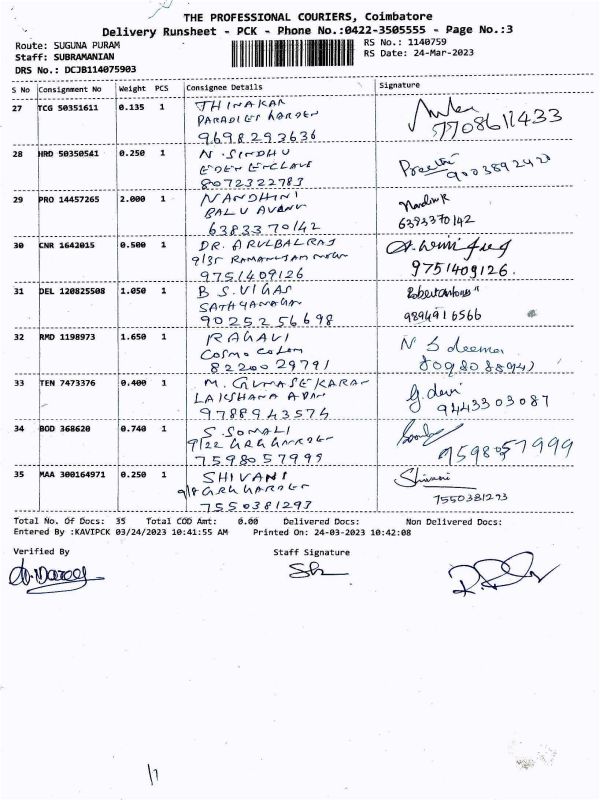 THE PROFESSIONAL COURIERS, Coimbatore
Delivery Runsheet - PCK - Phone No.:0422-3505555 - Page No.:3
Route: SUGUNA PURAM
RS No.: 1140759
Staff: SUBRAMANIAN
RS Date: 24-Mar-2023
DRS No.: DCJB114075903
S No Consignment No Weight PCS Consignee Details Signature
27 TCG 50351611 0.135 1 THINAKAR
PARADISE GARDEN
9698293636
7708611433
28 HRD 50350541 0.250 1 N. SINDHU
EDEN ENCLAVE
8072322783
Preethi
9003892420
29 PRO 14457265 2.000 1 NANDHINI
BALU AVENU
6383370142
Nandini K
6383370142
30 CNR 1642015 0.500 1 DR. ARULBALRAJ
9/35
9751409126
9751409126.
31 DEL 120825508 1.050 1 B S. VIGAS
SATHYANAGAR
9025256698
Robert Antony
9894916566
32 RMD 1198973 1.650 1 RAGAVI
COSMO COLONY
8220029791
N S
33 TEN 7473376 0.400 1 M. GUNASEKARAN
LAKSHANA APAR
9788943574
G. devi
9443303087
34 BOD 368620 0.740 1 S. SOMALI
9/22 GRG GARDEN
7598057999
7598057999
35 MAA 300164971 0.250 1 SHIVANI
9/8 GRG GARDEN
7550381293
Shivani
7550381293
Total No. Of Docs: 35 Total COD Amt: 0.00 Delivered Docs: Non Delivered Docs:
Entered By :KAVIPCK 03/24/2023 10:41:55 AM Printed On: 24-03-2023 10:42:08
Verified By Staff Signature